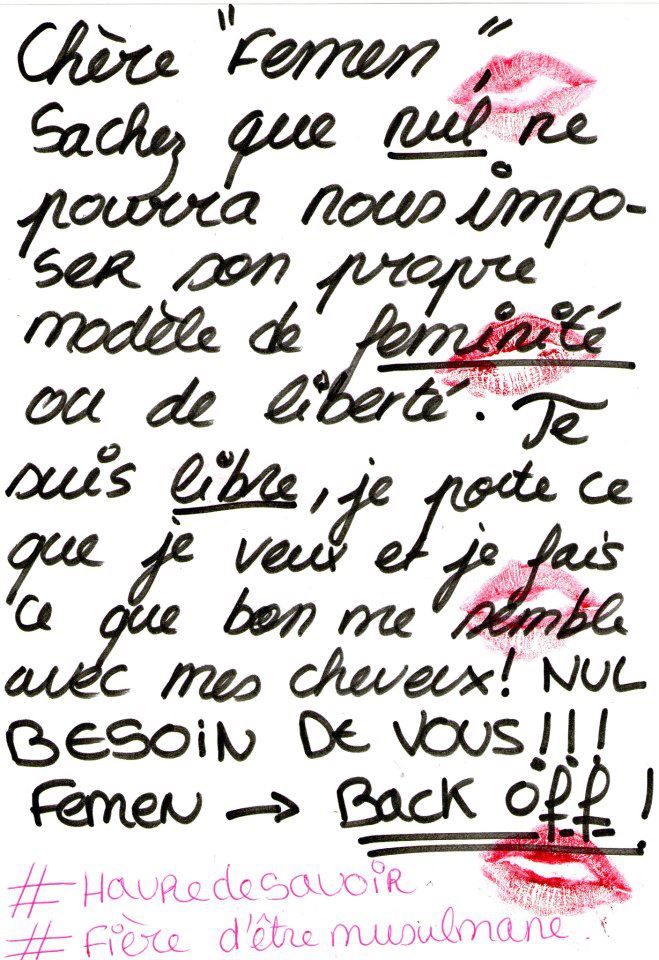 Chère "Femen"
Sachez que nul ne
pourra nous impo-
ser son propre
modèle de feminité
ou de liberté. Je
suis libre, je porte ce
que je veux et je fais
ce que bon me semble
avec mes cheveux! NUL
BESOIN DE VOUS!!!
Femen → Back off!
#Havredesavoir
#Fière d'être musulmane.